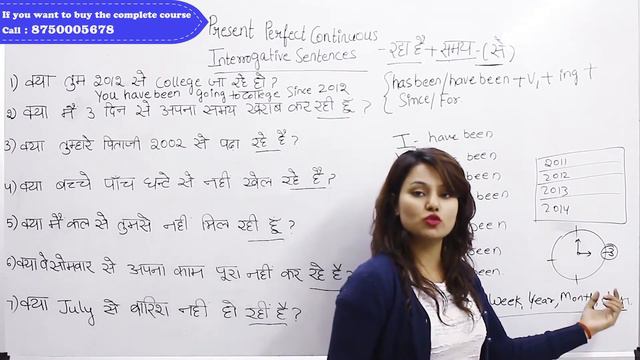 If you want to buy the complete course
Call : 8750005678
Present Perfect Continuous
Interrogative Sentences
- रहा है + समय - (से)
{ has been/have been + V₁ + ing +
Since/For
1) क्या तुम 2012 से College जा रहे हो?
You have been going to college since 2012
2) क्या मैं 3 दिन से अपना समय खराब कर रही हूँ ?
3) क्या तुम्हारे पिताजी 2002 से पढा रहे है?
4) क्या बच्चे पाँच घन्टे से नही खेल रहे है?
5) क्या मैं कल से तुमसे नहीं मिल रही हूँ?
6) क्या वे सोमवार से अपना काम पूरा नहीं कर रहे है?
7) क्या July से बारिश नहीं हो रहीं है?
I - have been
been
been
been
been
been
been
been.
2011
2012
2013
2014
Week, Year, Month